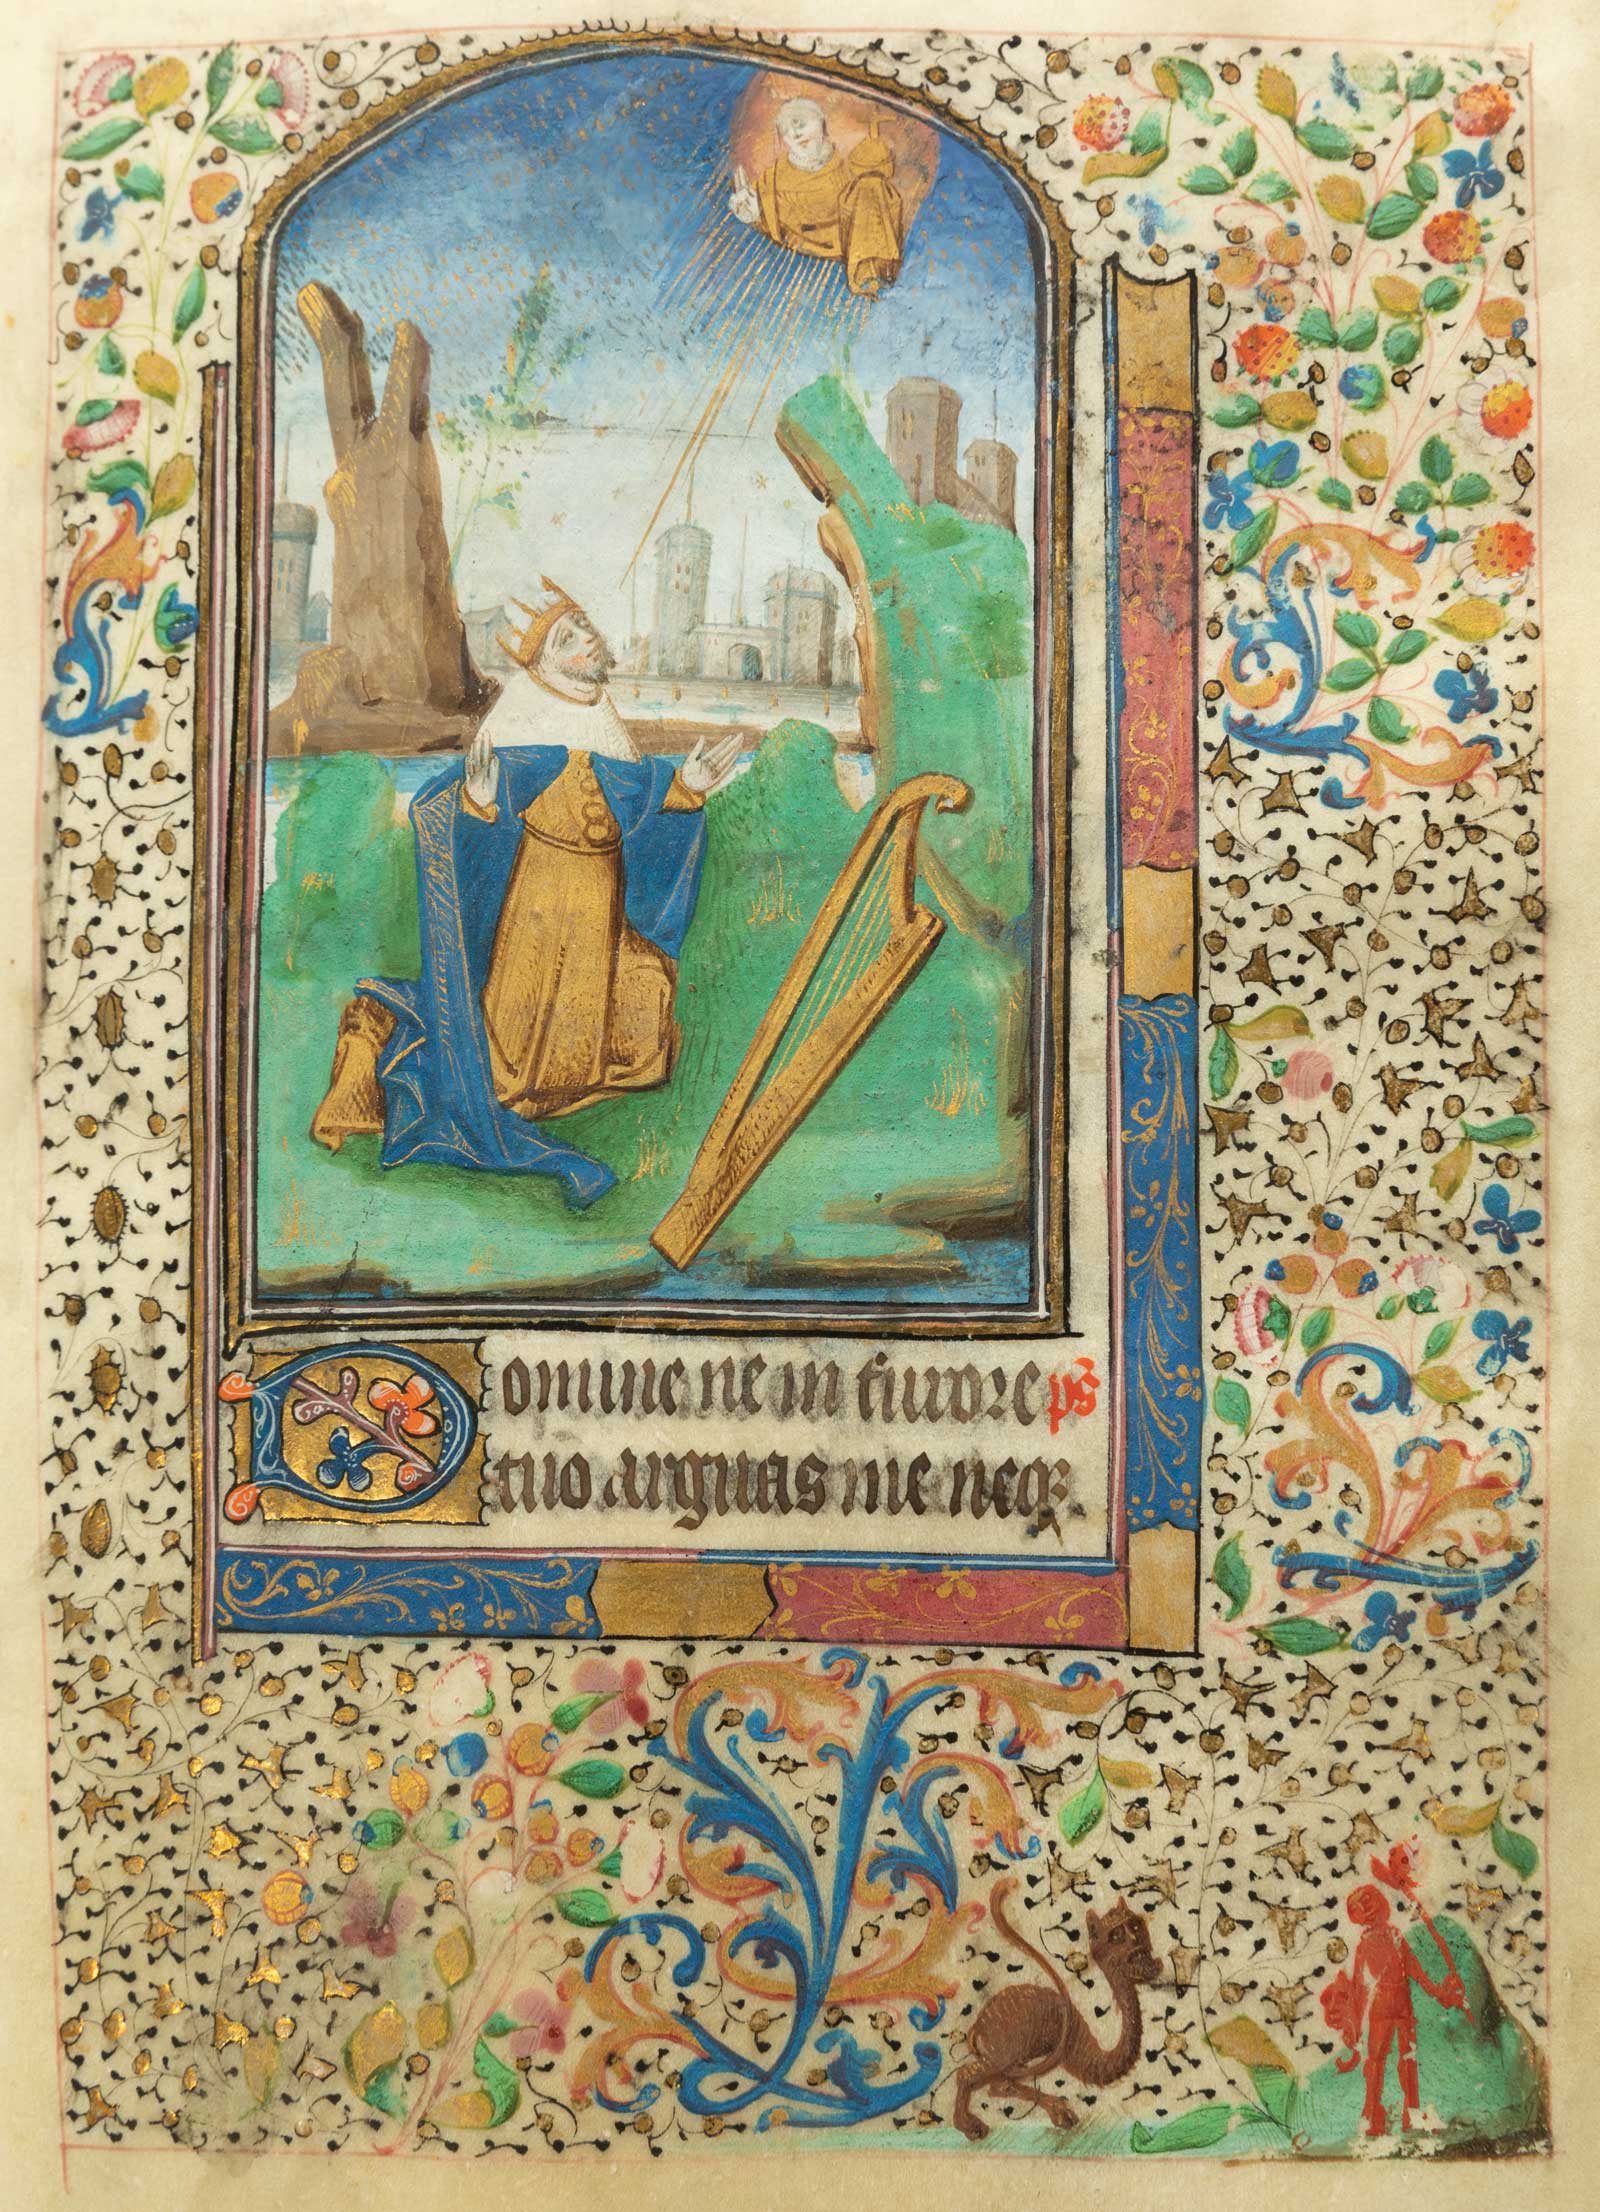 Domine ne in furore ps
tuo arguas me neqꝫ